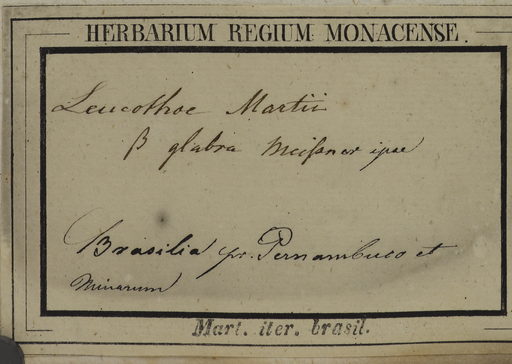 HERBARIUM REGIUM MONACENSE.
Leucothoe Martii
β glabra Meißner ipse
Brasilia pr. Pernambuco et
Minarum
Mart. iter. brasil.